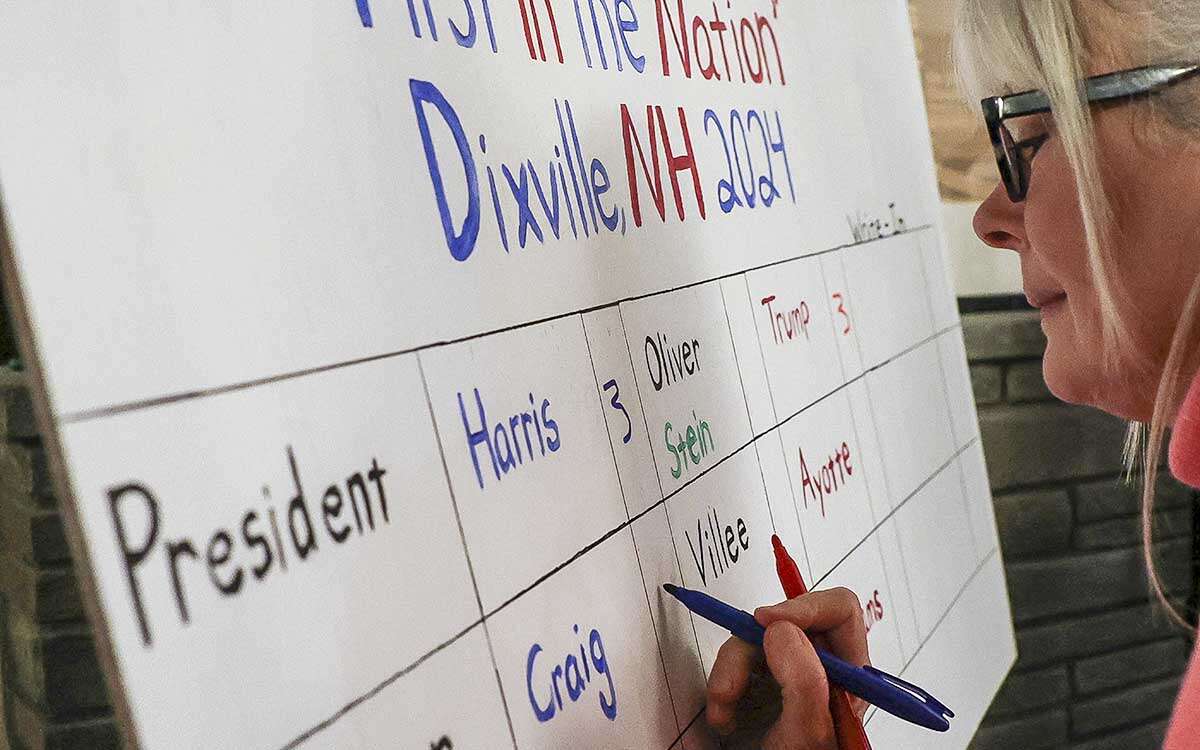 First in the Nation"
Dixville, NH 2024
Write-In
President Harris 3 Oliver Stein Trump 3
Craig Villee Ayotte